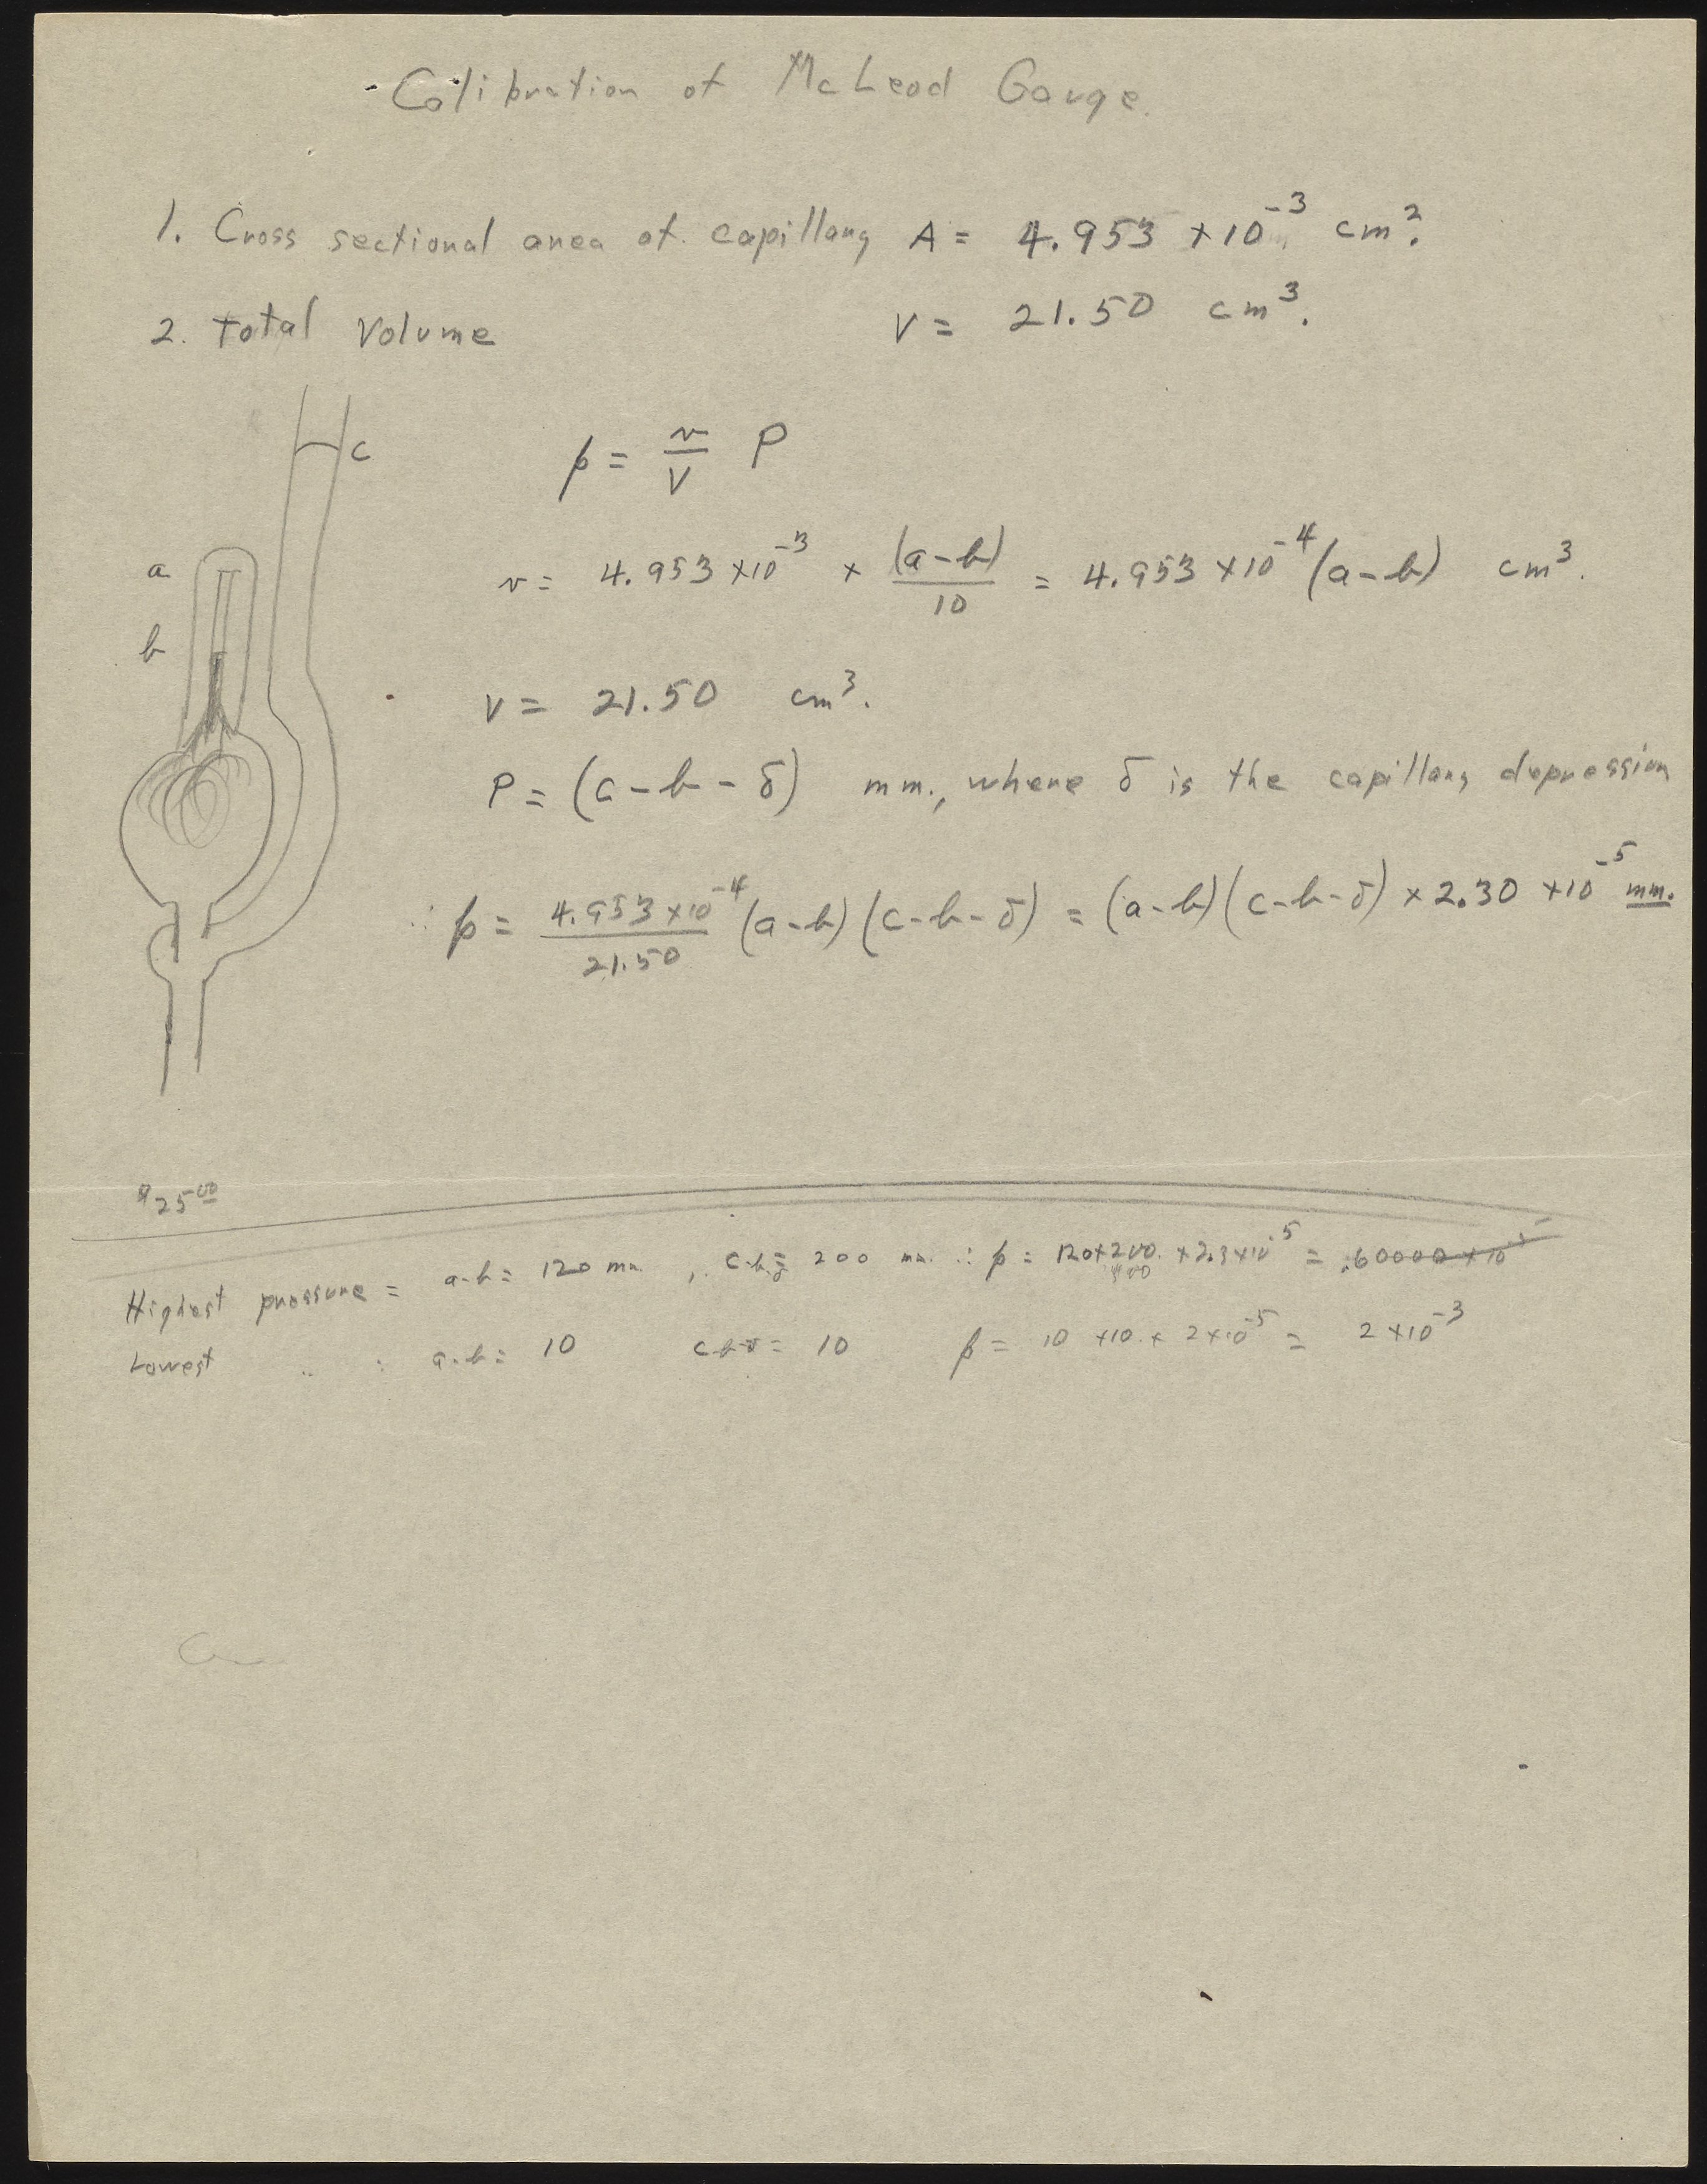 Calibration of McLeod Gauge.
1. Cross sectional area of capillary A = 4.953 × 10⁻³ cm².
2. total Volume V = 21.50 cm³.
c
p = v/V P
a
v = 4.953 × 10⁻³ × (a-b)/10 = 4.953 × 10⁻⁴ (a-b) cm³.
b
V = 21.50 cm³.
P = (c-b-δ) mm., where δ is the capillary depression
∴ p = 4.953 × 10⁻⁴/21.50 (a-b)(c-b-δ) = (a-b)(c-b-δ) × 2.30 × 10⁻⁵ mm.
$25 00
Highest pressure = a-b = 120 mm. , c-b-δ = 200 mm. ∴ p = 120×200 × 2.3×10⁻⁵ = .60000 × 10⁻⁵
Lowest " : a-b = 10 c-b-δ = 10 p = 10 × 10 × 2×10⁻⁵ = 2 × 10⁻³